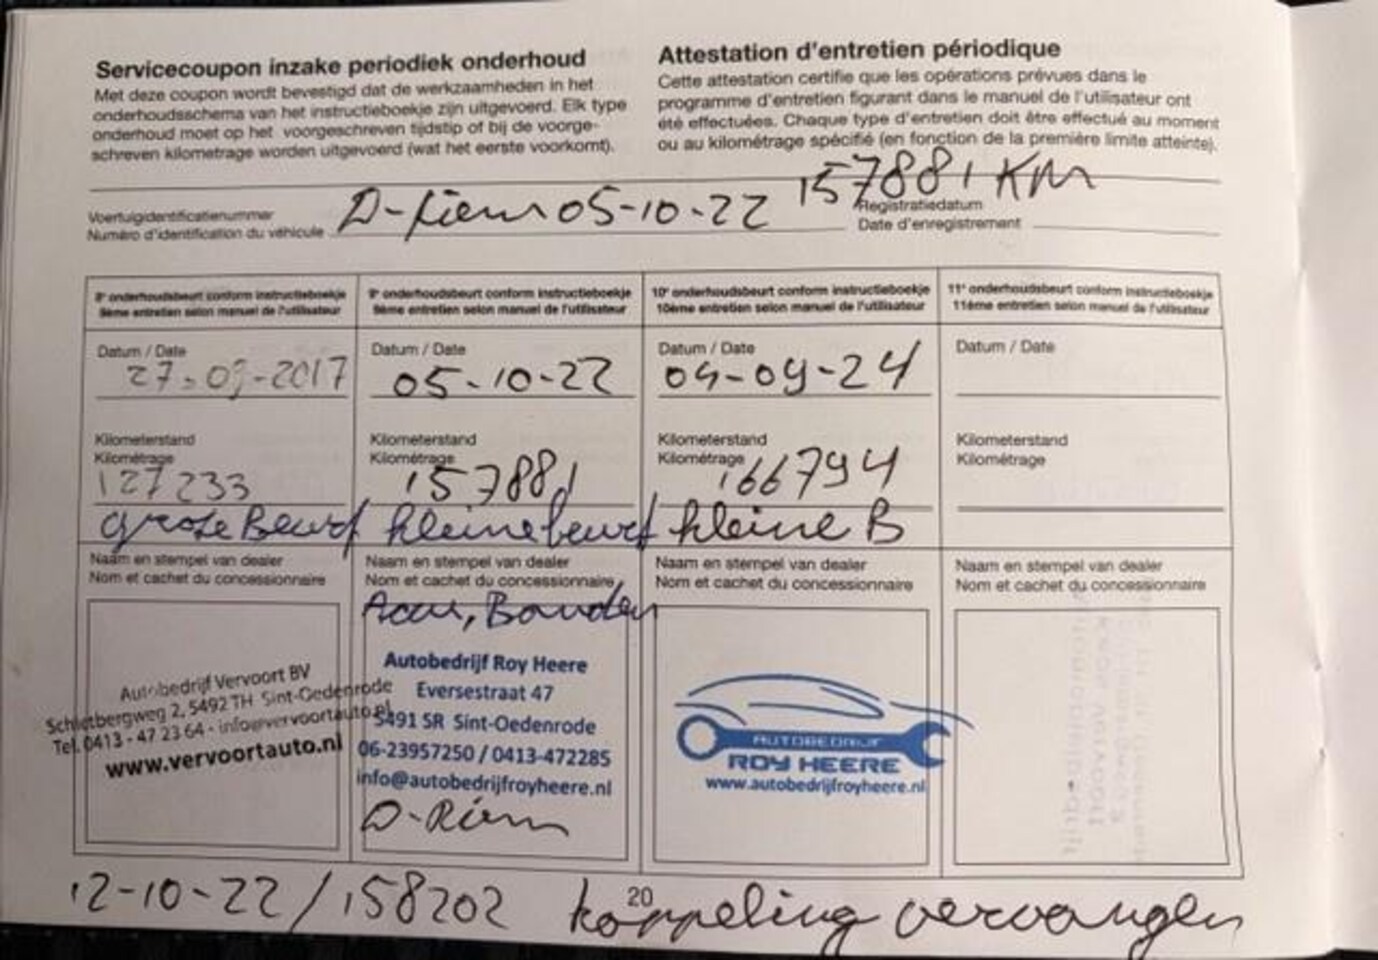 Servicecoupon inzake periodiek onderhoud
Met deze coupon wordt bevestigd dat de werkzaamheden in het
onderhoudsschema van het instructieboekje zijn uitgevoerd. Elk type
onderhoud moet op het voorgeschreven tijdstip of bij de voorge-
schreven kilometrage worden uitgevoerd (wat het eerste voorkomt).
Attestation d'entretien périodique
Cette attestation certifie que les opérations prévues dans le
programme d'entretien figurant dans le manuel de l'utilisateur ont
été effectuées. Chaque type d'entretien doit être effectué au moment
ou au kilométrage spécifié (en fonction de la première limite atteinte).
Voertuigidentificatienummer
Numéro d'identification du véhicule
D-Riem 05-10-22 157881 KM
Registratiedatum
Date d'enregistrement
8e onderhoudsbeurt conform instructieboekje
8ème entretien selon manuel de l'utilisateur
Datum / Date
27-09-2017
Kilometerstand
Kilométrage
127233
grote Beurt
Naam en stempel van dealer
Nom et cachet du concessionnaire
Autobedrijf Vervoort BV
Schietbergweg 2, 5492 TH Sint-Oedenrode
Tel. 0413 - 47 23 64 - info@vervoortauto.nl
www.vervoortauto.nl
9e onderhoudsbeurt conform instructieboekje
9ème entretien selon manuel de l'utilisateur
Datum / Date
05-10-22
Kilometerstand
Kilométrage
157881
kleine beurt
Naam en stempel van dealer
Nom et cachet du concessionnaire
Accu, Banden
Autobedrijf Roy Heere
Eversestraat 47
5491 SR Sint-Oedenrode
06-23957250 / 0413-472285
info@autobedrijfroyheere.nl
D-Riem
10e onderhoudsbeurt conform instructieboekje
10ème entretien selon manuel de l'utilisateur
Datum / Date
04-09-24
Kilometerstand
Kilométrage
166794
kleine B
Naam en stempel van dealer
Nom et cachet du concessionnaire
AUTOBEDRIJF
ROY HEERE
www.autobedrijfroyheere.nl
11e onderhoudsbeurt conform instructieboekje
11ème entretien selon manuel de l'utilisateur
Datum / Date
Kilometerstand
Kilométrage
Naam en stempel van dealer
Nom et cachet du concessionnaire
20
12-10-22 / 158202 koppeling vervangen